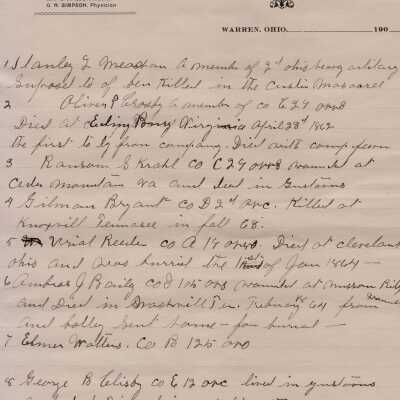 G. R. SIMPSON, Physician
WARREN, OHIO, 190
1 Stanley G Meachan A member of 2d ohio heavy artilary
Supposed to of ben Killed in the Custin Massacred
2 Oliver P Crosby A member of co E 29 ovvi
Died at Edinburg Virginia April 28th 1862
the first to Dy from company. Died with camp fever
3 Ransom E Krahl co C 29 ovvi wounded at
Ceder Mountain va and died in Gustavus
4 Gilman Bryant co D 2nd ovc. Killed at
Knoxvill Tennasee in fall 63.
5 Urial Reeder co A 19 ovvi. Died at cleveland
Ohio and was burried the 1st of Jan 1864 -
6 Ambros J Baily co I 105 ovo wounded at Murson Ridg
and Died in Nashvill Ten. February 64 from
and boddy Sent home - for burial -
7 Elmer Watters. Co B 125 ovo
8 George B Clisby co E 12 ovc lived in gustavus